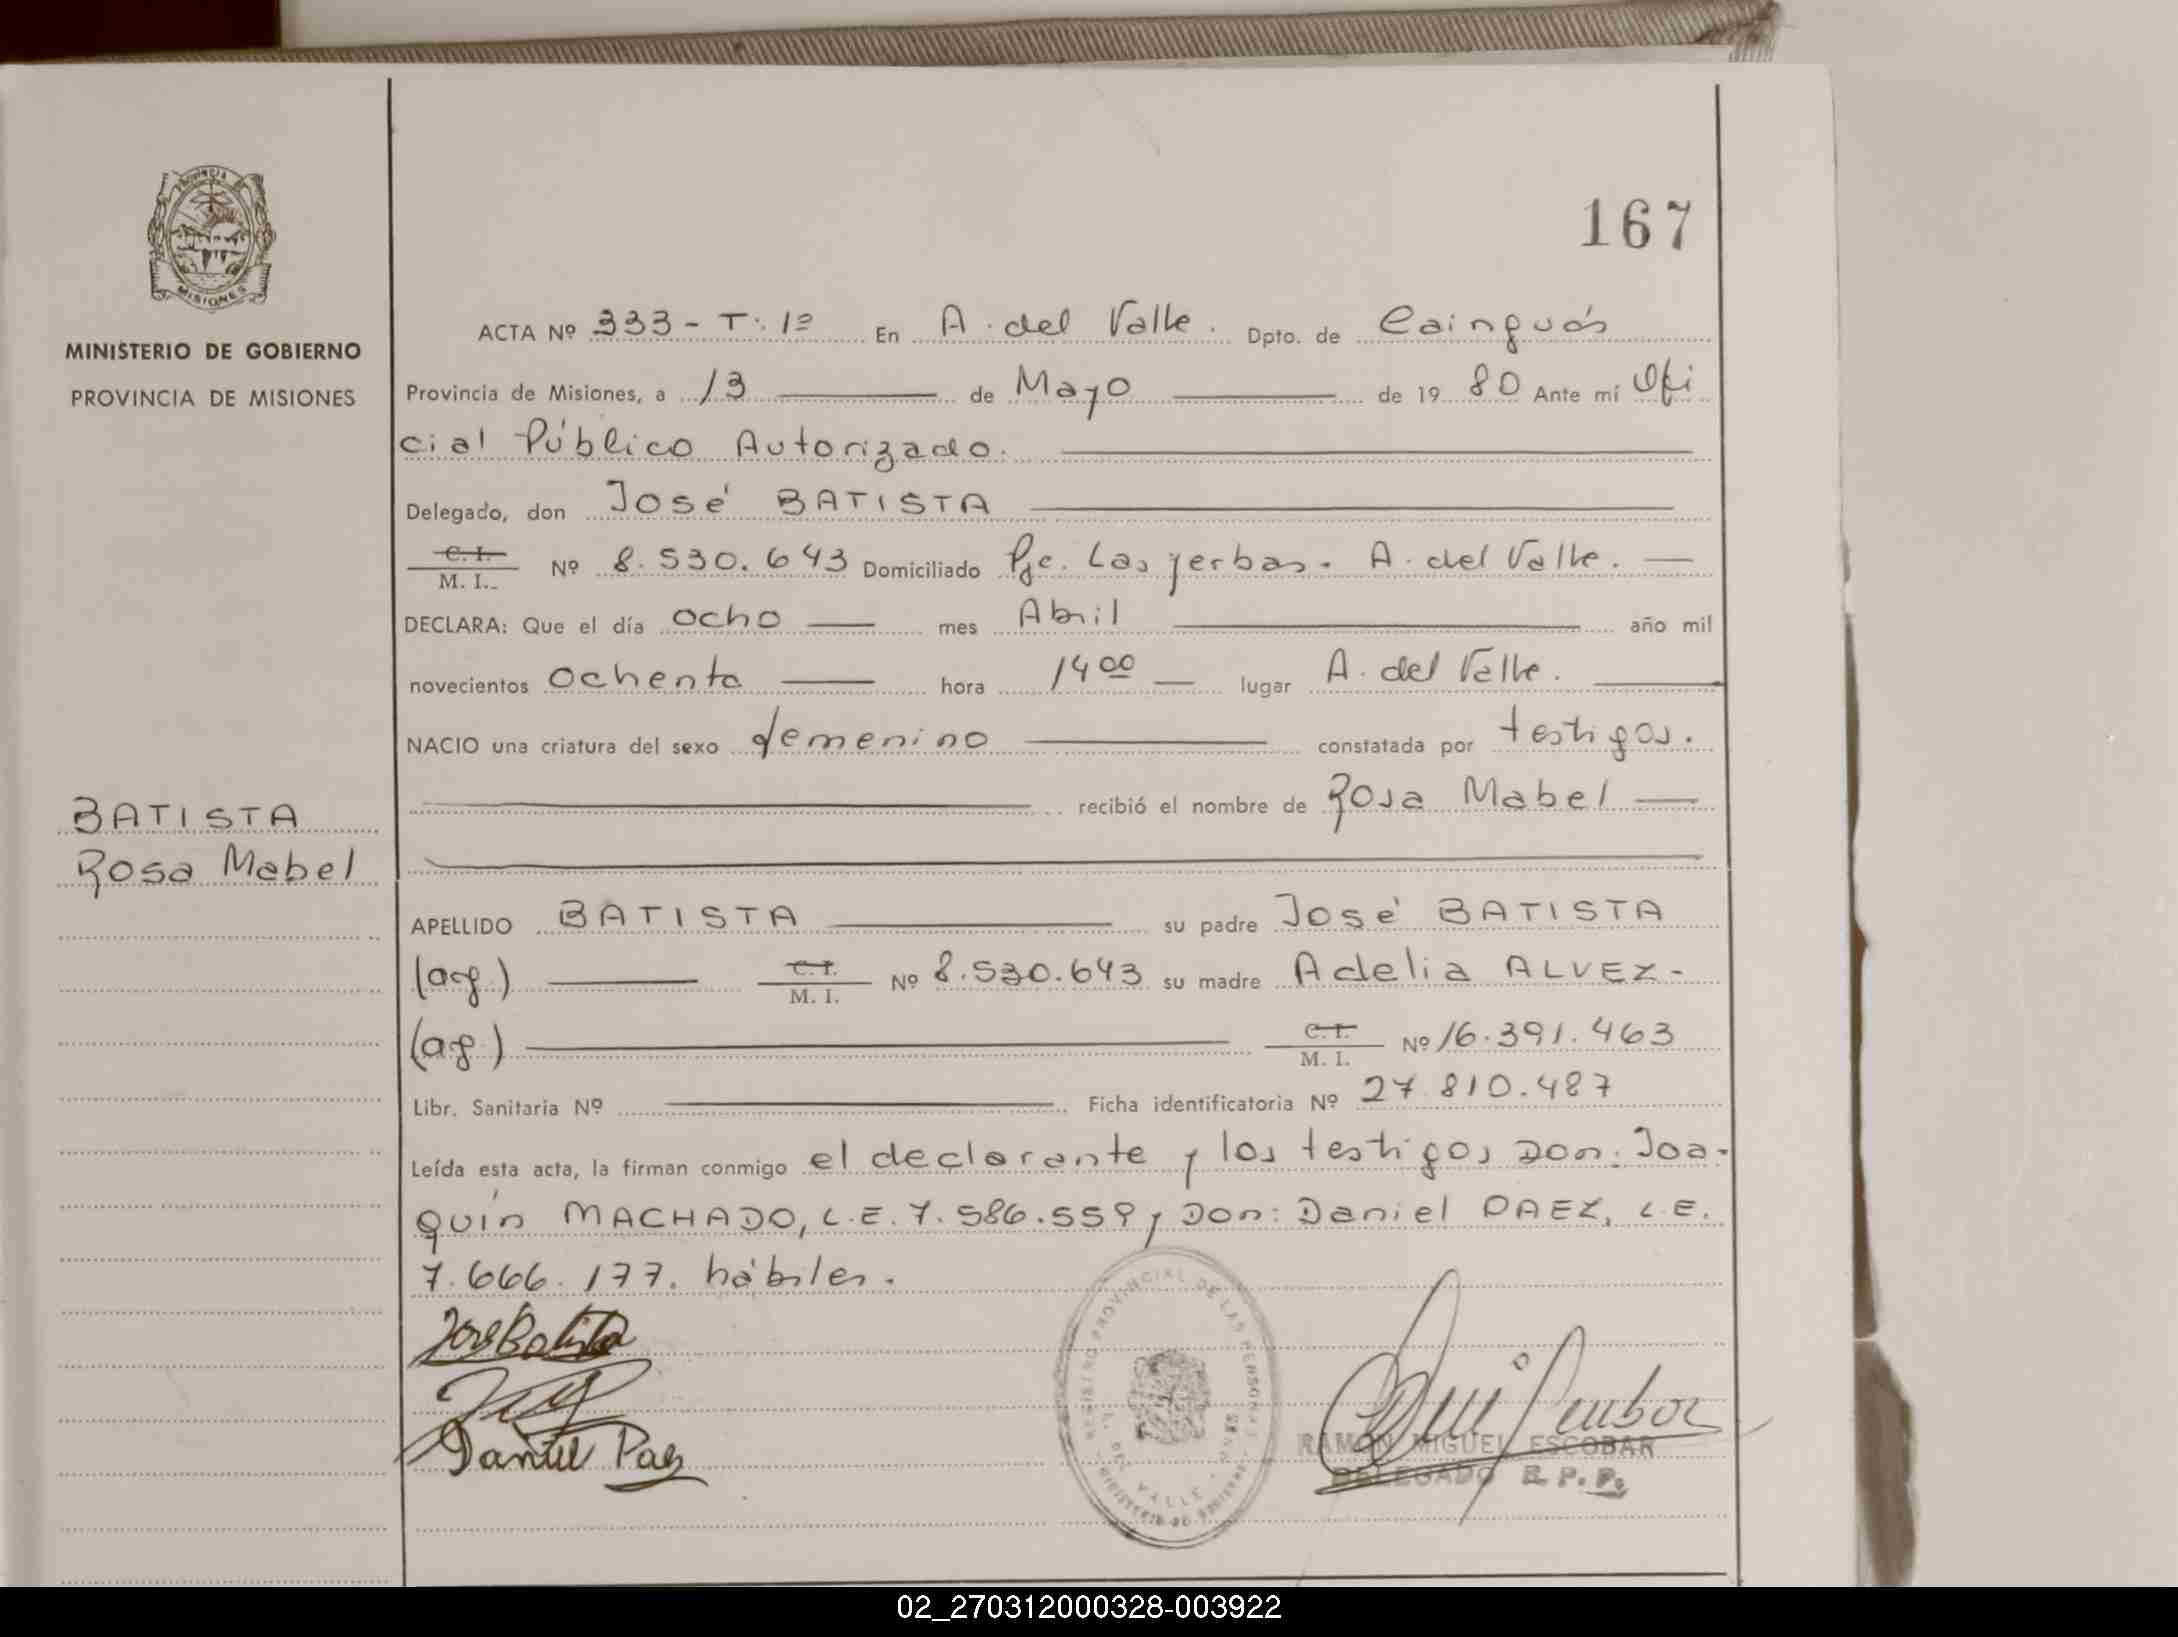 167
PROVINCIA DE
MISIONES
MINISTERIO DE GOBIERNO
PROVINCIA DE MISIONES
ACTA Nº 333 - T: 1º En A. del Valle. Dpto. de Cainguás
Provincia de Misiones, a 13 de Mayo de 1980 Ante mí Ofi
cial Público Autorizado.
Delegado, don José BATISTA
C. I. M. I. Nº 8.530.643 Domiciliado Pje. Las yerbas. A. del Valle.
DECLARA: Que el día ocho mes Abril año mil
novecientos ochenta hora 14 00 lugar A. del Valle.
NACIO una criatura del sexo femenino constatada por testigos.
recibió el nombre de Rosa Mabel
BATISTA
Rosa Mabel
APELLIDO BATISTA su padre José BATISTA
(arg.) C. I. M. I. Nº 8.530.643 su madre Adelia ALVEZ-
(arg.) C. I. M. I. Nº 16.391.463
Libr. Sanitaria Nº Ficha identificatoria Nº 27.810.487
Leída esta acta, la firman conmigo el declarante y los testigos Don: Joa-
quín MACHADO, L.E. 7.586.559 y Don: Daniel PAEZ, L.E.
7.666.177. hábiles.
José Batista
Daniel Paez
REGISTRO PROVINCIAL DE LAS PERSONAS
DEL VALLE
MINISTERIO DE GOBIERNO
RAMON MIGUEL ESCOBAR
DELEGADO R. P. P.
02_270312000328-003922